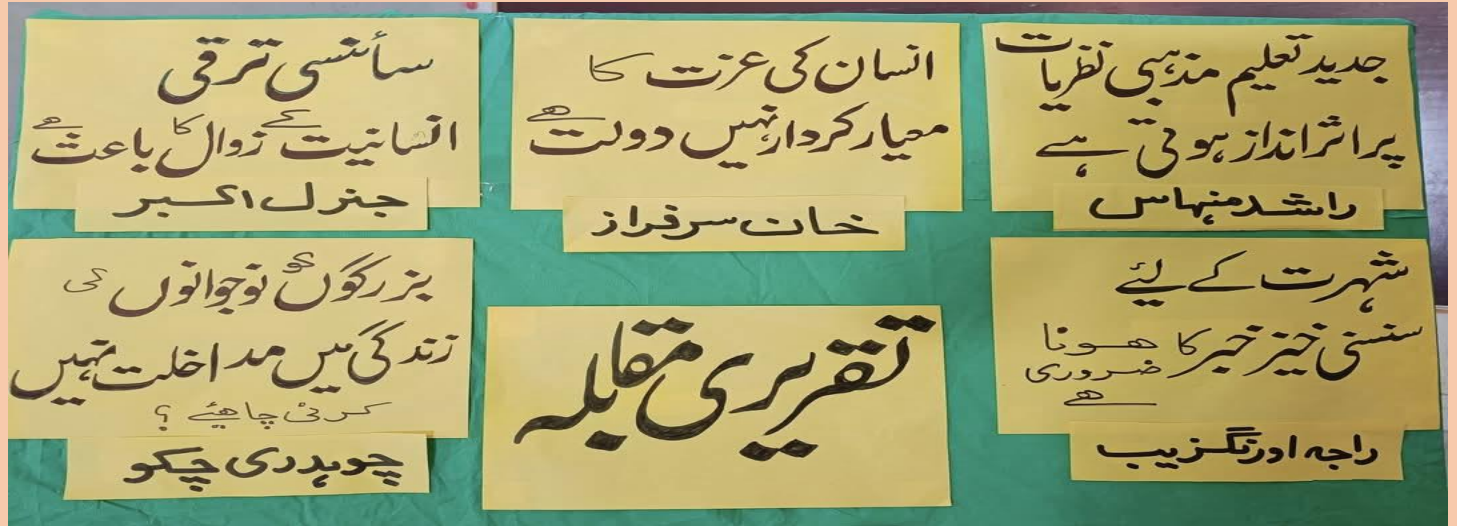 جدید تعلیم مذہبی نظریات
پر اثر انداز ہوتی ہے
راشد منہاس
انسان کی عزت کا
معیار کردار نہیں دولت ھے
خان سرفراز
سأنسی ترقی
انسانیت کے زوال کا باعث ھے
جنرل اکبر
شہرت کے لیٔے
سنسنی خیز خبر کا ھونا
ضروری
ھے
راجہ اورنگزیب
تقریری مقابلہ
بزرگوں کو نوجوانوں کی
زندگی میں مداخلت نہیں
کرنی چاھیٔے ؟
چوہدری چکو